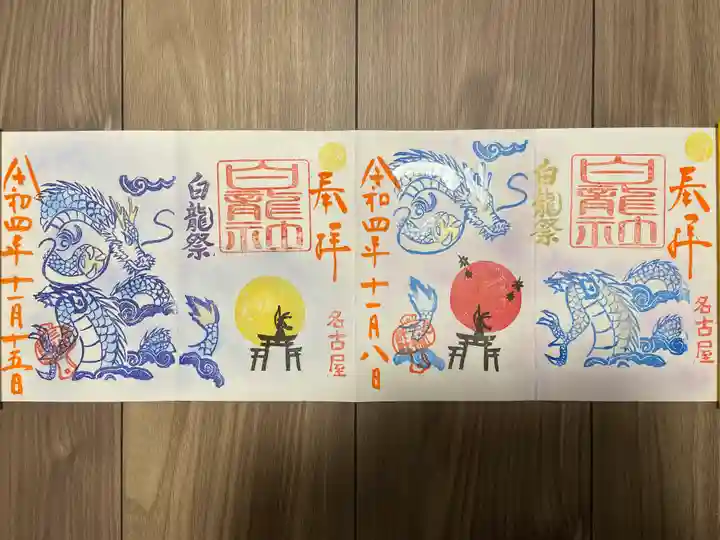 奉拝
白龍社
白龍祭
名古屋
令和四年十一月八日
奉拝
白龍社
白龍祭
名古屋
令和四年十一月十五日